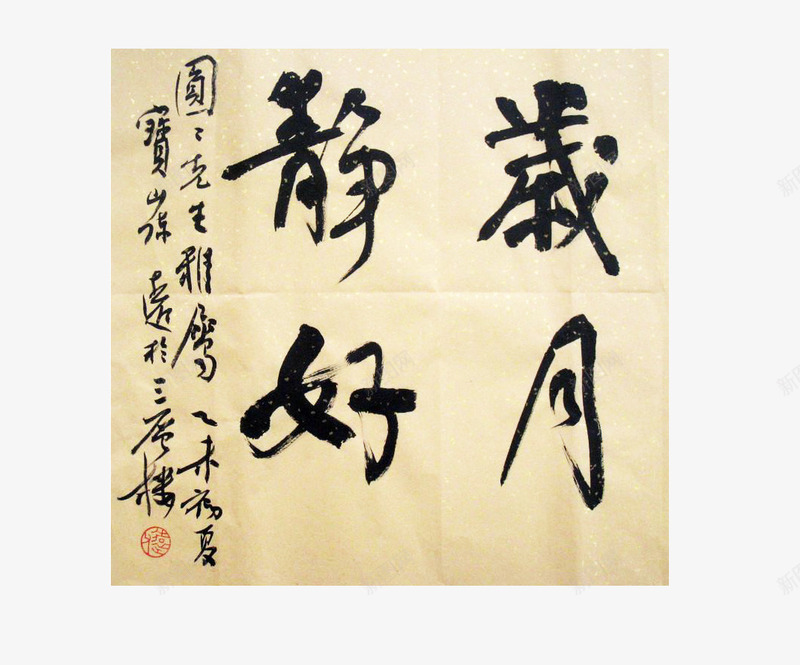 歲月
靜好
圓〻先生雅屬 乙未初夏
寶山孫遠於三層樓